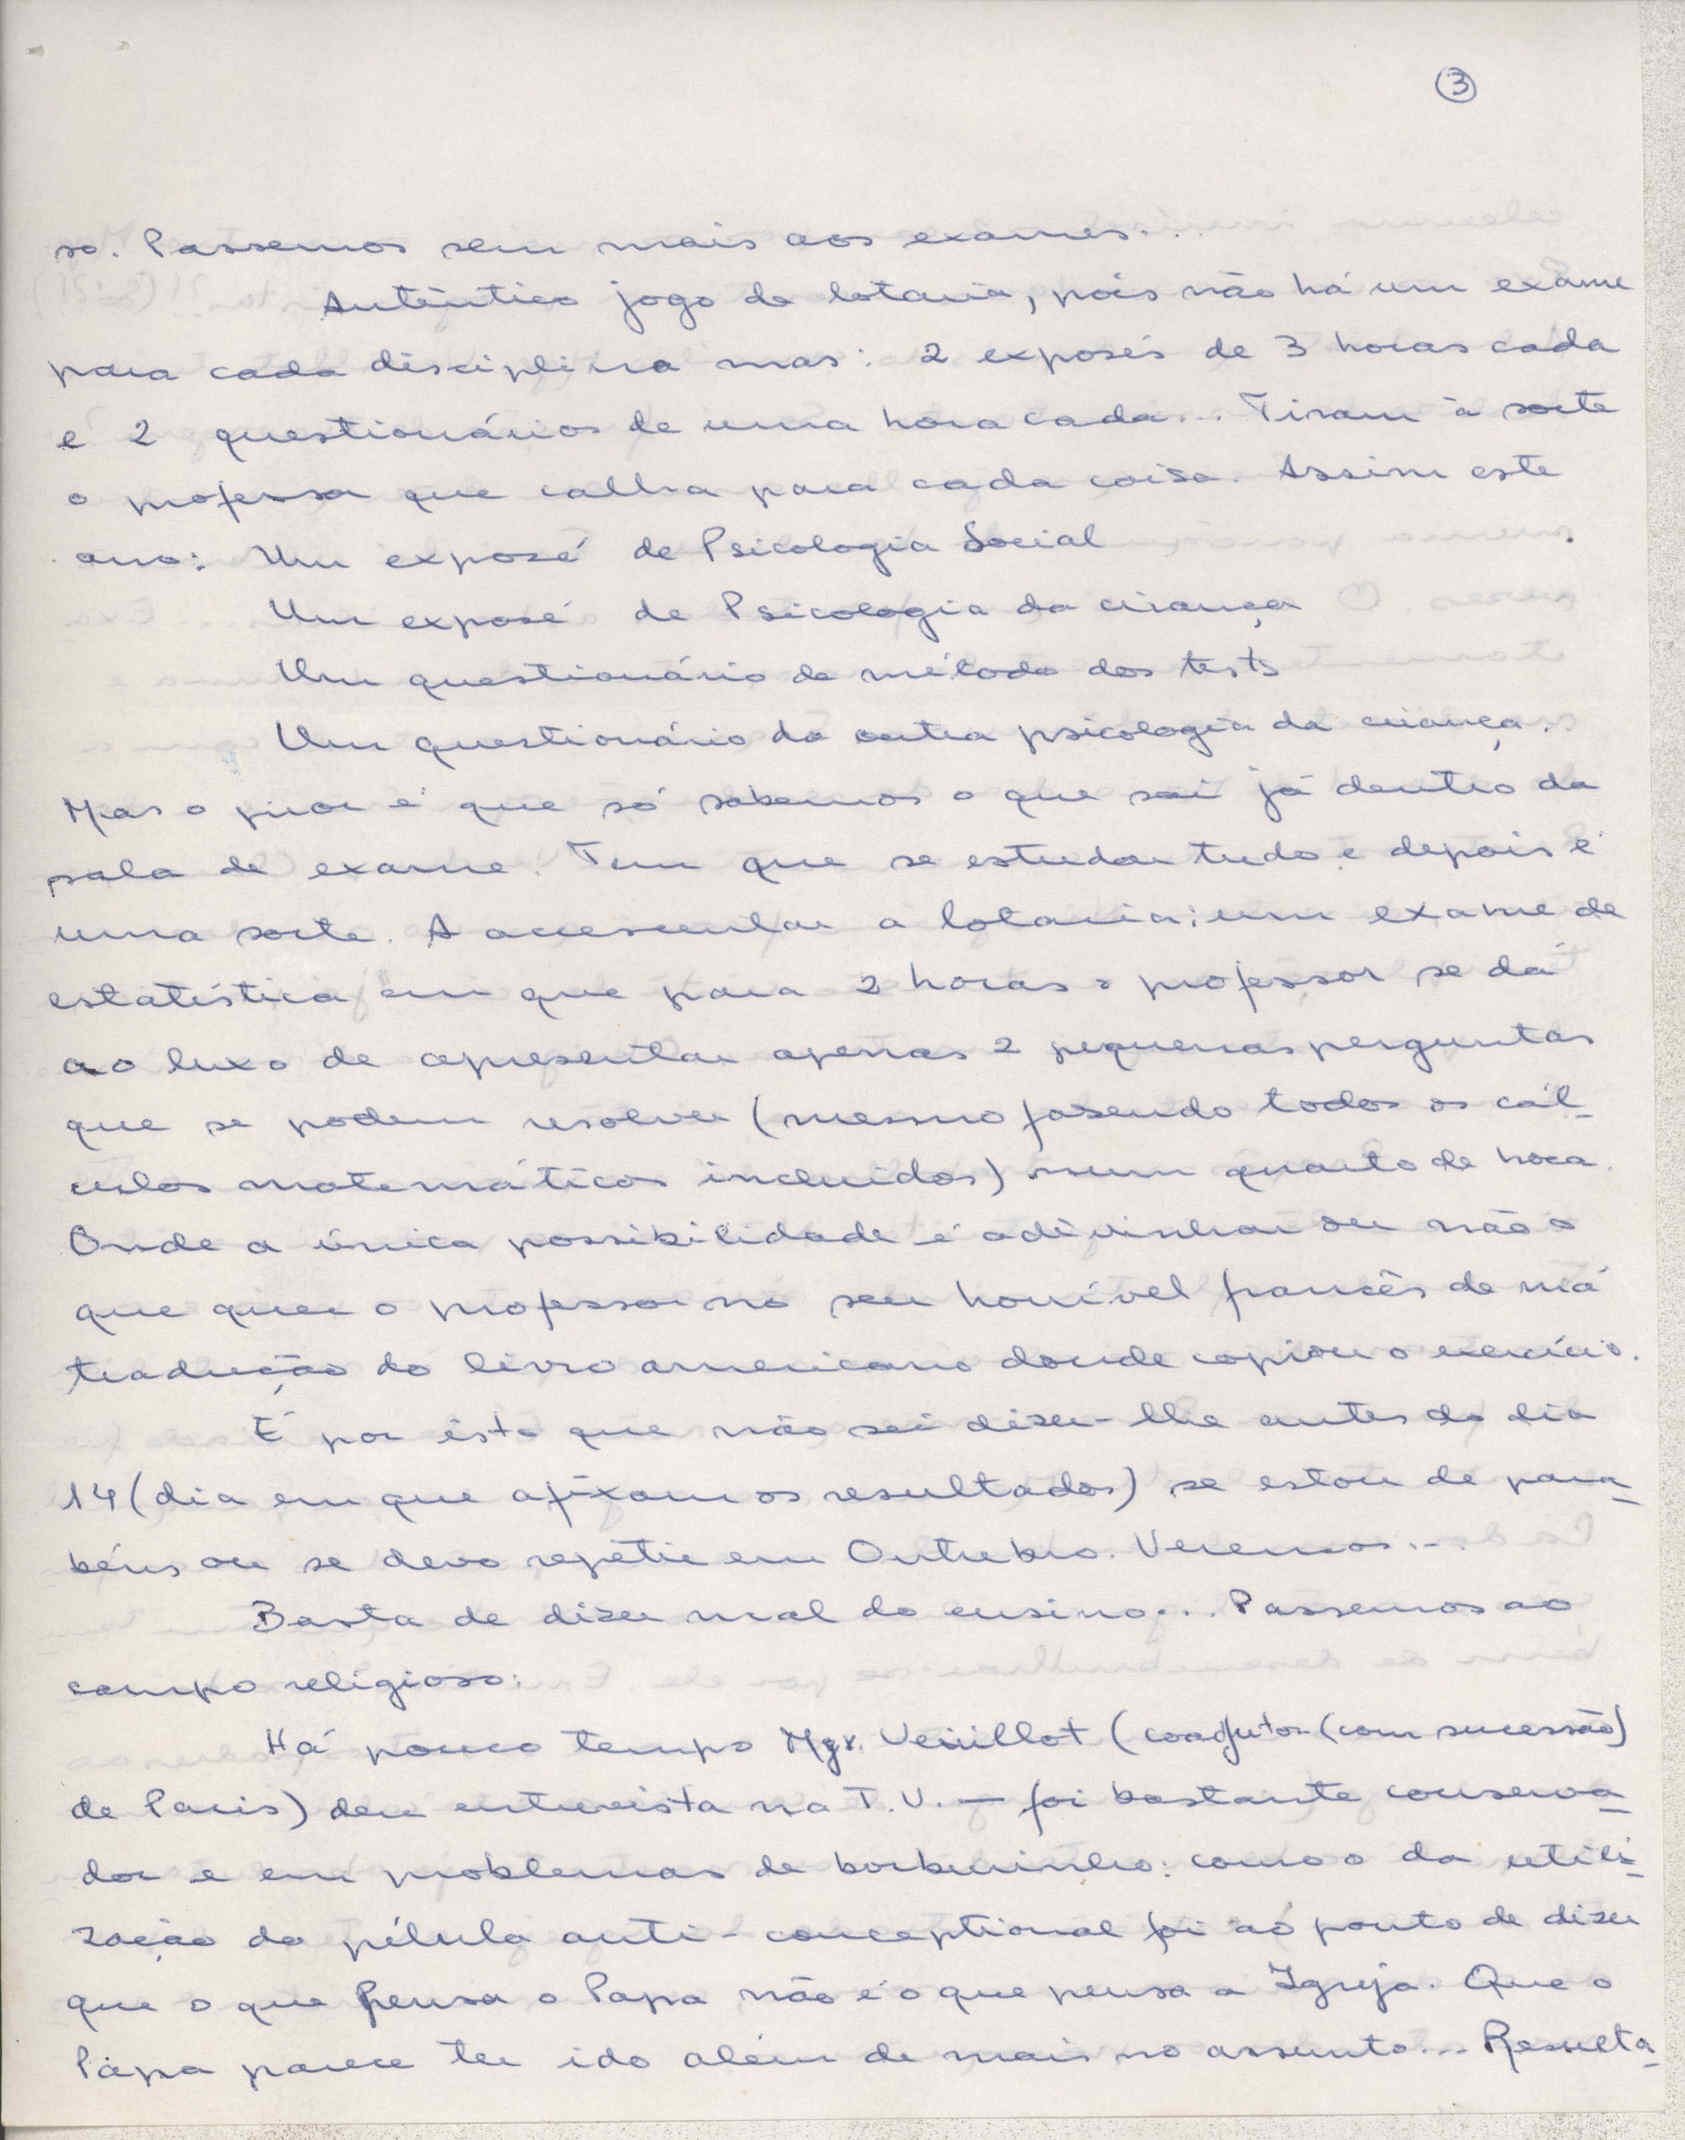 3
so. Passemos sem mais aos exames...
Autêntico jogo de lotaria, pois não há um exame
para cada disciplina mas: 2 exposés de 3 horas cada
e 2 questionários de uma hora cada... Tiram à sorte
o professor que calha para cada coisa. Assim este
ano: Um exposé de Psicologia Social
Um exposé de Psicologia da criança
Um questionário de método dos tests
Um questionário da outra psicologia da criança.
Mas o pior é que só sabemos o que sai já dentro da
sala de exame. Tem que se estudar tudo e depois é
uma sorte. A acrescentar a lotaria: um exame de
estatística em que para 2 horas o professor se dá
ao luxo de apresentar apenas 2 pequenas perguntas
que se podem resolver (mesmo fazendo todos os cál-
culos matemáticos incluidos) num quarto de hora.
Onde a única possibilidade é adivinhar ou não o
que quer o professor no seu horrível francês de má
tradução do livro americano donde copiou o exercício.
É por isto que não sei dizer-lhe antes do dia
14 (dia em que afixam os resultados) se estou de para-
béns ou se devo repetir em Outubro. Veremos...
Basta de dizer mal do ensino... Passemos ao
campo religioso:
Há pouco tempo Mgr. Veuillot (coadjutor (com sucessão)
de Paris) deu entrevista na T.V. — foi bastante conserva-
dor e em problemas de borburinho: como o da utili-
zação da pílula anti-conceptional foi ao ponto de dizer
que o que pensa o Papa não é o que pensa a Igreja. Que o
Papa parece ter ido além de mais no assunto... Resulta-